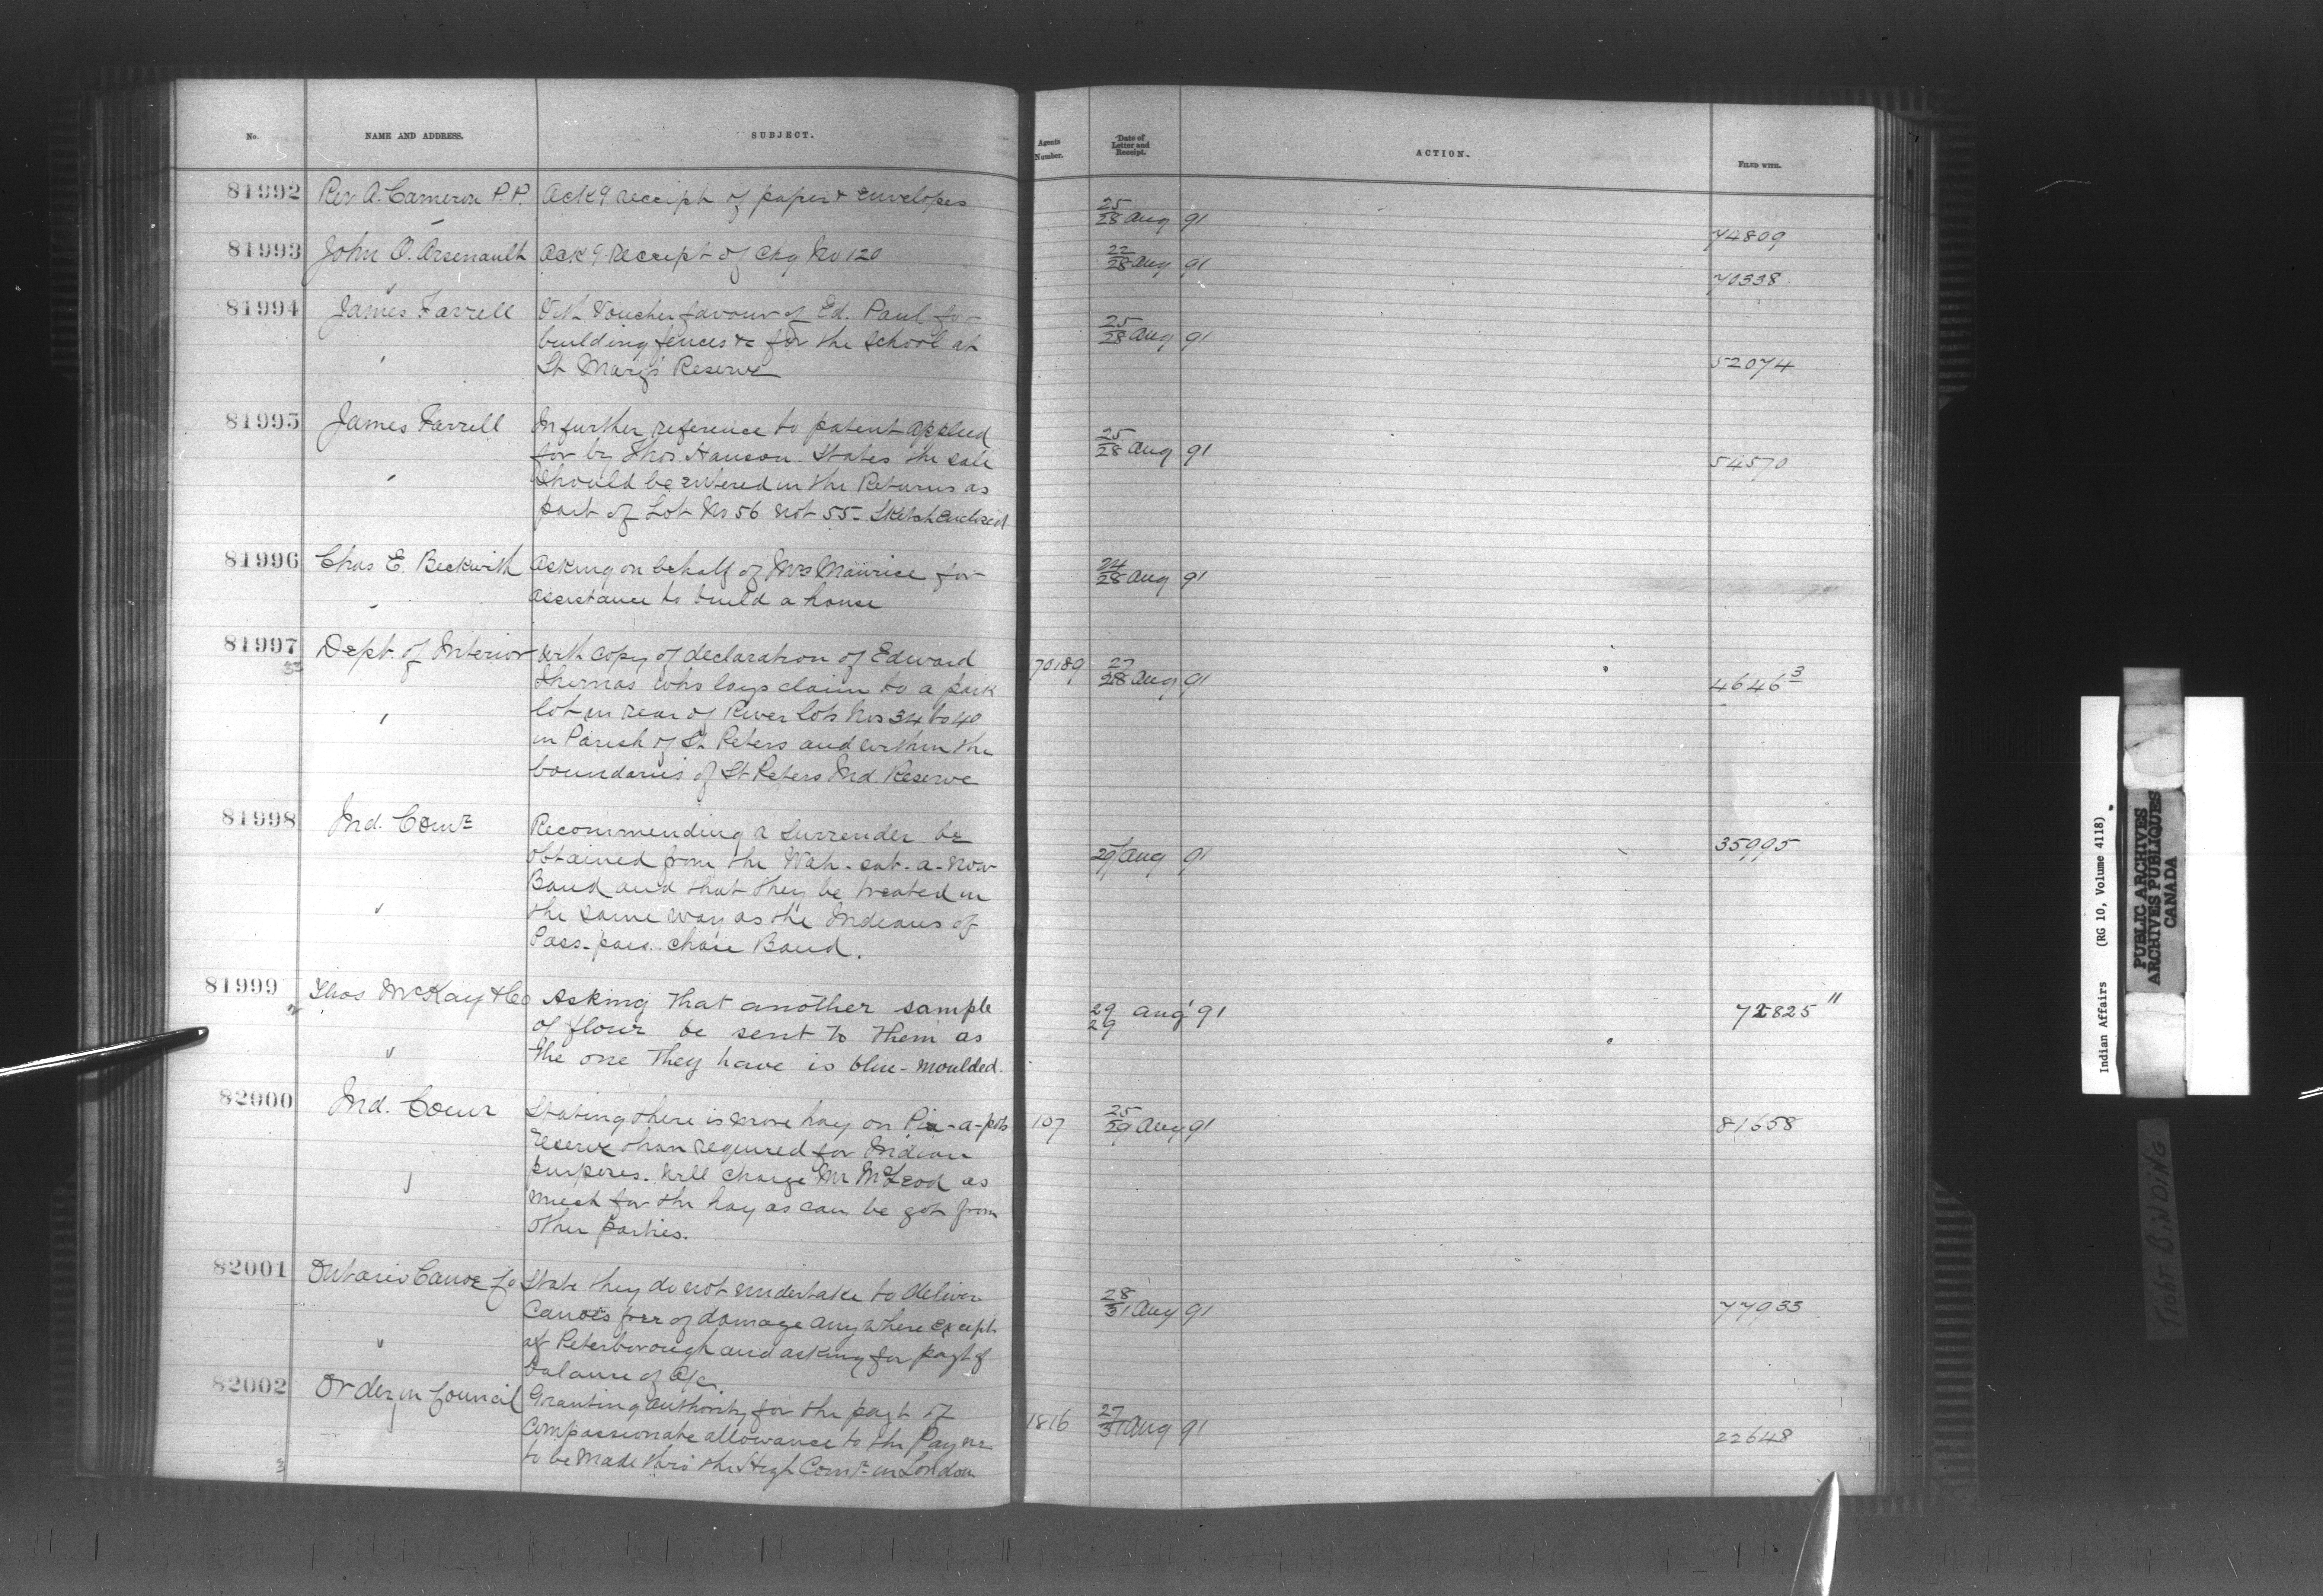 No. NAME AND ADDRESS. SUBJECT. Agents Number. Date of Letter and Receipt. ACTION. FILED WITH.
81992 Rev A. Cameron P.P. Ackg receipt of paper & envelopes 25/28 Aug 91 74809
81993 John O. Arsenault Ackg receipt of chq No 120 22/28 Aug 91 70338
81994 James Farrell With Voucher favour of Ed. Paul for
building fences &c for the School at 25/28 Aug 91
St Mary's Reserve 52074
81995 James Farrell In further reference to patent applied
for by Thos. Hanson. States the sale 25/28 Aug 91 54570
should be entered in the Returns as
part of Lot No 56 not 55. Sketch enclosed
81996 Chas E. Beckwith Asking on behalf of Mrs Maurice for 24/28 Aug 91
assistance to build a house
81997 Dept. of Interior With copy of declaration of Edward 70189 27/28 Aug 91
33 Thomas who lays claim to a park 4646 3
lot in rear of River lots Nos 34 to 40
in Parish of St Peters and within the
boundaries of St Peters Ind. Reserve
81998 Ind. Comr Recommending a surrender be 35995
obtained from the Wah-sat-a-now 29 Aug 91
Band and that they be treated in
the same way as the Indians of
Pass-pass-chase Band.
81999 Thos McKay & Co Asking that another sample 29/29 Aug' 91 72825 "
of flour be sent to them as
the one they have is blue-moulded.
82000 Ind. Comr Stating there is more hay on Pia-a-pots 107 25/29 Aug 91 81658
reserve than required for Indian
purposes. Will charge Mr McLeod as
much for the hay as can be got from
other parties.
82001 Ontario Canoe Co State they do not undertake to deliver 28/31 Aug 91 77933
Canoes free of damage anywhere except
at Peterborough and asking for payt of
balance of a/c.
82002 Order in Council Granting authority for the payt of 1816 27/31 Aug 91
Compassionate allowance to the Payne 22648
3 to be made thro' the High Comr in London
Indian Affairs (RG 10, Volume 4118)
PUBLIC ARCHIVES
ARCHIVES PUBLIQUES
CANADA
TIGHT BINDING